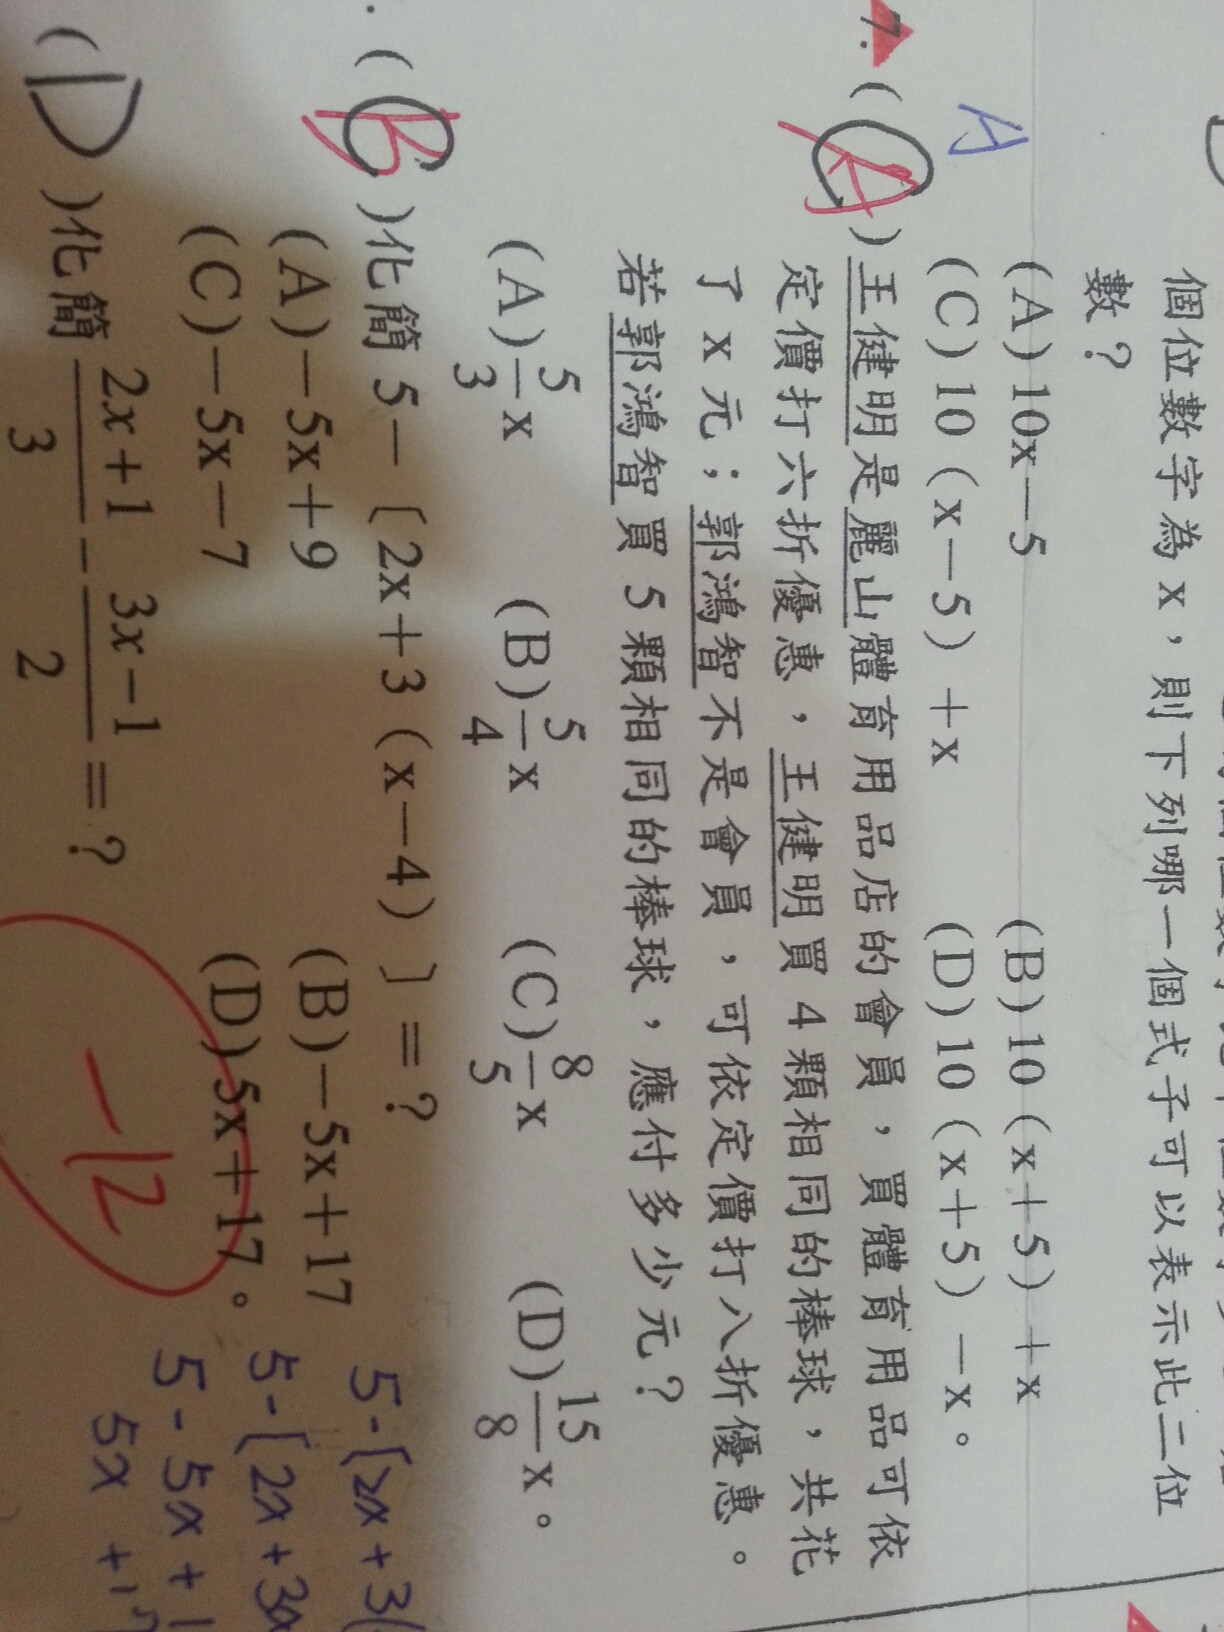 個位數字為 x，則下列哪一個式子可以表示此二位
數？
(A) 10x－5 (B) 10（x＋5）＋x
(C) 10（x－5）＋x (D) 10（x＋5）－x。
A
7. ( A )王健明是麗山體育用品店的會員，買體育用品可依
定價打六折優惠，王健明買 4 顆相同的棒球，共花
了 x 元；郭鴻智不是會員，可依定價打八折優惠。
若郭鴻智買 5 顆相同的棒球，應付多少元？
(A) 5/3 x (B) 5/4 x (C) 8/5 x (D) 15/8 x。
( B )化簡 5－〔2x＋3（x－4）〕＝？
(A)－5x＋9 (B)－5x＋17
(C)－5x－7 (D) 5x＋17。
5-[2x+3(
5-[2x+3x
5-5x+1
5x +17
( D )化簡 2x+1/3 － 3x－1/2 ＝？
-12